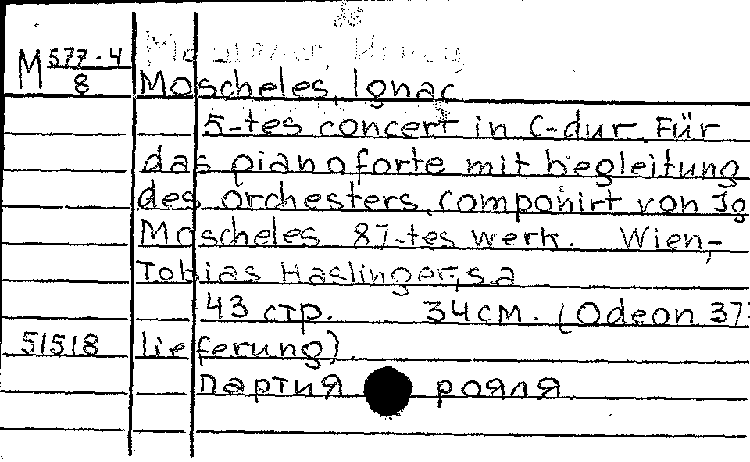 М 577-4
8
Moscheles, Ignac
5-tes concert in C-dur. Für
das pianoforte mit begleitung
des orchesters, componirt von Ig
Moscheles 87-tes werk. Wien,-
Tobias Haslinger, s.a
43 стр. 34 см. (Odeon 37
51518 lieferung).
партия рояля